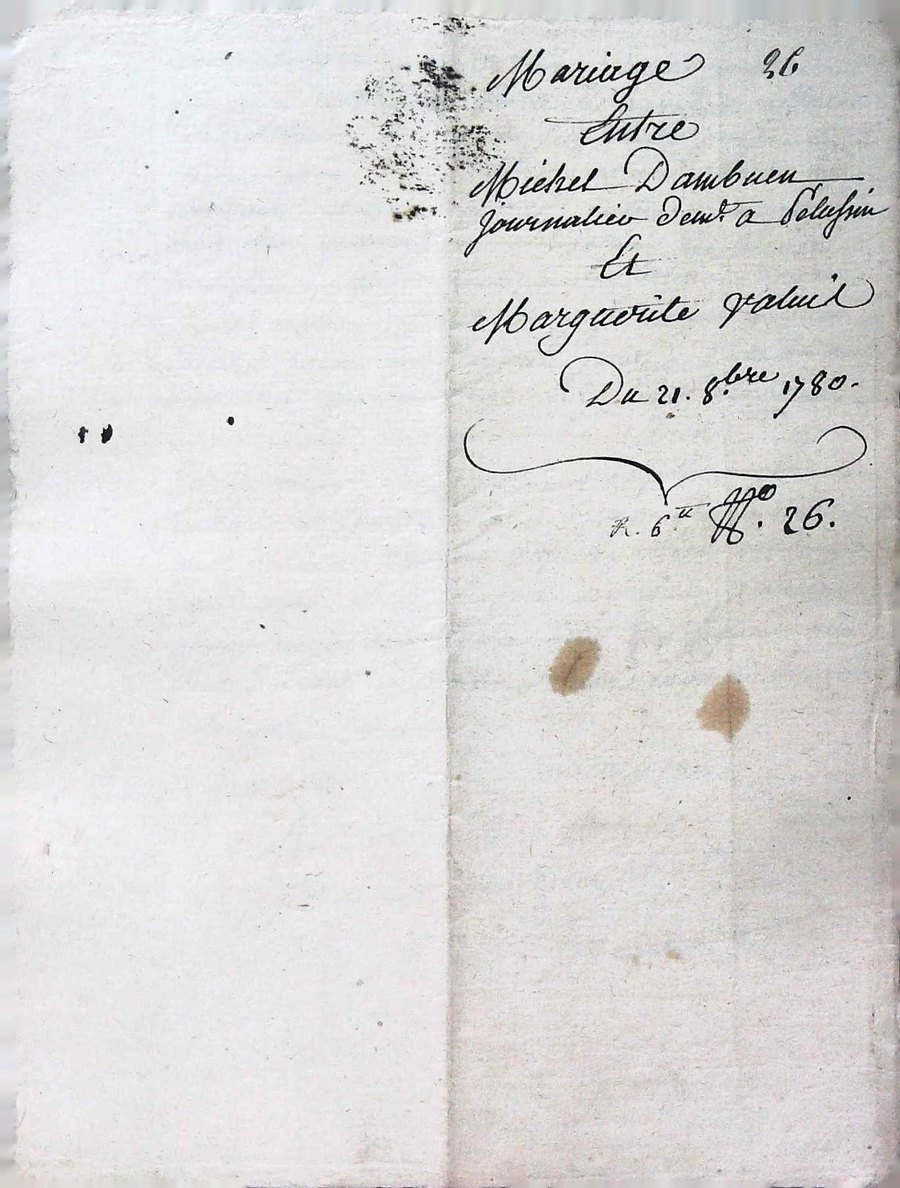 Mariage 26
Entre
Michel Dambuen
journalier dem.t a Pelussin
Et
Marguerite
Du 21. 8.bre 1780.
R. 6.tt No. 26.